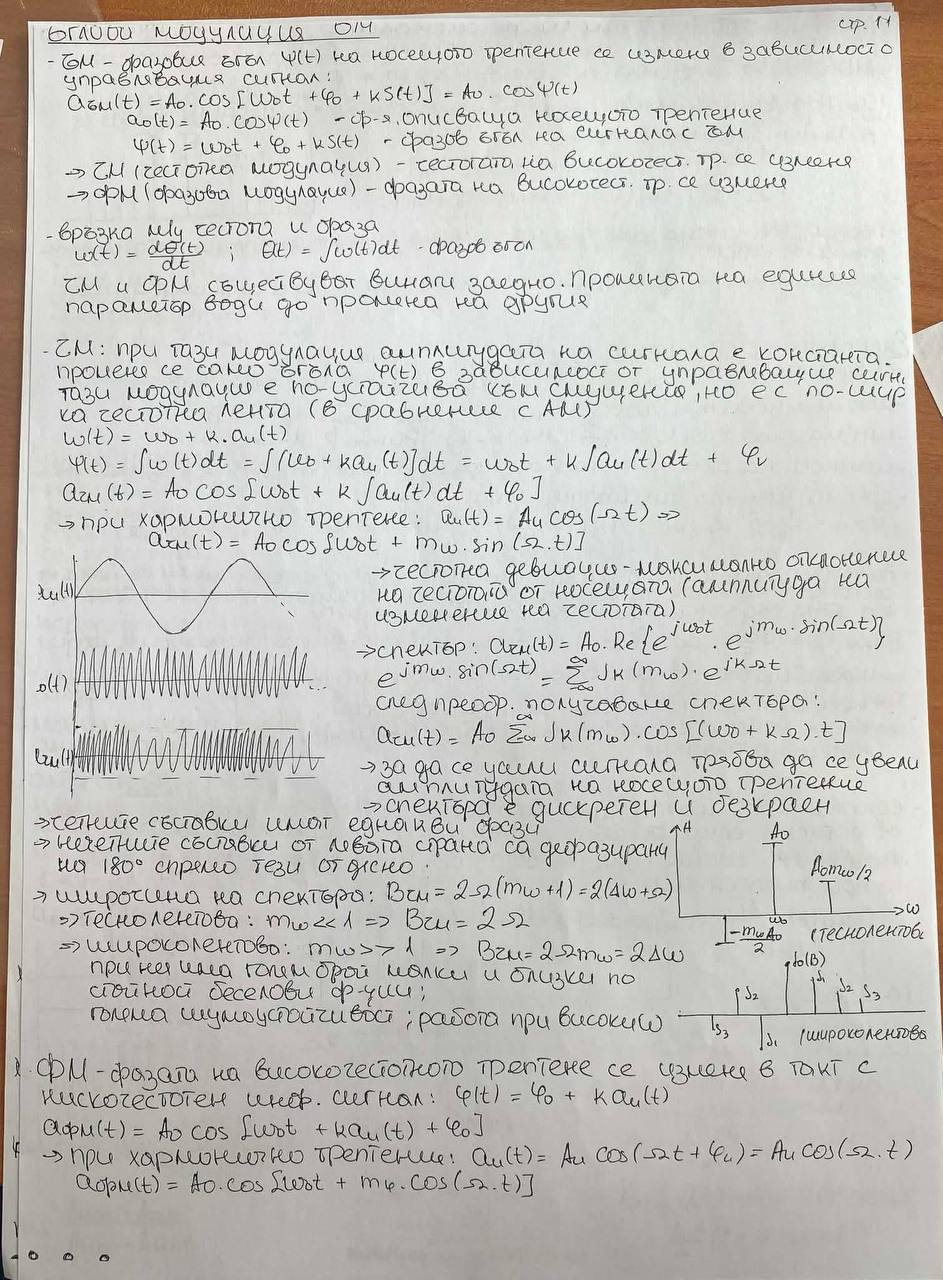 Ъглови модулация ЪМ
стр. 11
- ЪМ - фазовия ъгъл Ψ(t) на носещото трептение се изменя в зависимост о
управлявация сигнал:
aъм(t) = A₀.cos[ω₀t + φ₀ + kS(t)] = A₀. cosΨ(t)
a₀(t) = A₀.cosΨ(t) - ф-я, описваща носещото трептение
Ψ(t) = ω₀t + φ₀ + kS(t) - фазов ъгъл на сигнала с ъм
→ ЧМ (честотна модулация) - честотата на високочест. тр. се изменя
→ ФМ (фазова модулация) - фазата на високочест. тр. се изменя
- връзка м/у честота и фаза
ω(t) = dθ(t)/dt ; θ(t) = ∫ω(t)dt - фазов ъгъл
ЧМ и ФМ съществуват винаги заедно. Промяната на единия
параметър води до промяна на другия
- ЧМ: при тази модулация амплитудата на сигнала е константа.
променя се само ъгъла Ψ(t) в зависимост от управляващия сигн.
тази модулация е по-устойчива към смущения, но е с по-шир
ка честотна лента (в сравнение с АМ)
ω(t) = ω₀ + k.aᵤ(t)
Ψ(t) = ∫ω(t)dt = ∫[ω₀ + kaᵤ(t)]dt = ω₀t + k∫aᵤ(t)dt + φᵥ
aчм(t) = A₀ cos[ω₀t + k∫aᵤ(t)dt + φ₀]
→ при хармонично трептене: aᵤ(t) = Aᵤ cos(Ωt) ⇒
aчм(t) = A₀ cos[ω₀t + mω.sin(Ω.t)]
aᵤ(t)
₀(t)
...
aчм(t)
→ честотна девиация - максимално отклонение
на честотата от носещата (амплитуда на
изменение на честотата)
→ спектър: aчм(t) = A₀.Re{e^jω₀t . e^jmω.sin(Ωt)}
e^jmω.sin(Ωt) = ∞Σ-∞ Jk(mω).e^jkΩt
след преобр. получаваме спектъра:
aчм(t) = A₀ ∞Σ-∞ Jk(mω).cos[(ω₀ + kΩ).t]
→ за да се усили сигнала трябва да се увели
амплитудата на носещото трептение
→ спектъра е дискретен и безкраен
→ четните съставки имат еднакви фази
→ нечетните съставки от лявата страна са дефазирани
на 180° спрямо тези отдясно.
→ широчина на спектъра: Bчм = 2Ω(mω+1) = 2(Δω+Ω)
⇒ теснолентова: mω<<1 ⇒ Bчм = 2Ω
⇒ широколентова: mω>>1 ⇒ Bчм = 2Ωmω = 2Δω
при нея има голям брой малки и близки по
стойност беселови ф-ции;
голяма шумоустойчивост; работа при високи ω
A
A₀
A₀mω/2
ω₀
ω
-mωA₀/2
(теснолентова
J₀(B)
J₁
J₂
J₂
J₃
J₃
J₁
(широколентова
ФМ - фазата на високочестотното трептене се изменя в такт с
нискочестотен инф. сигнал: φ(t) = φ₀ + kaᵤ(t)
aфм(t) = A₀ cos[ω₀t + kaᵤ(t) + φ₀]
→ при хармонично трептение: aᵤ(t) = Aᵤ cos(Ωt + φᵤ) = Aᵤ cos(Ω.t)
aфм(t) = A₀.cos[ω₀t + mφ.cos(Ω.t)]